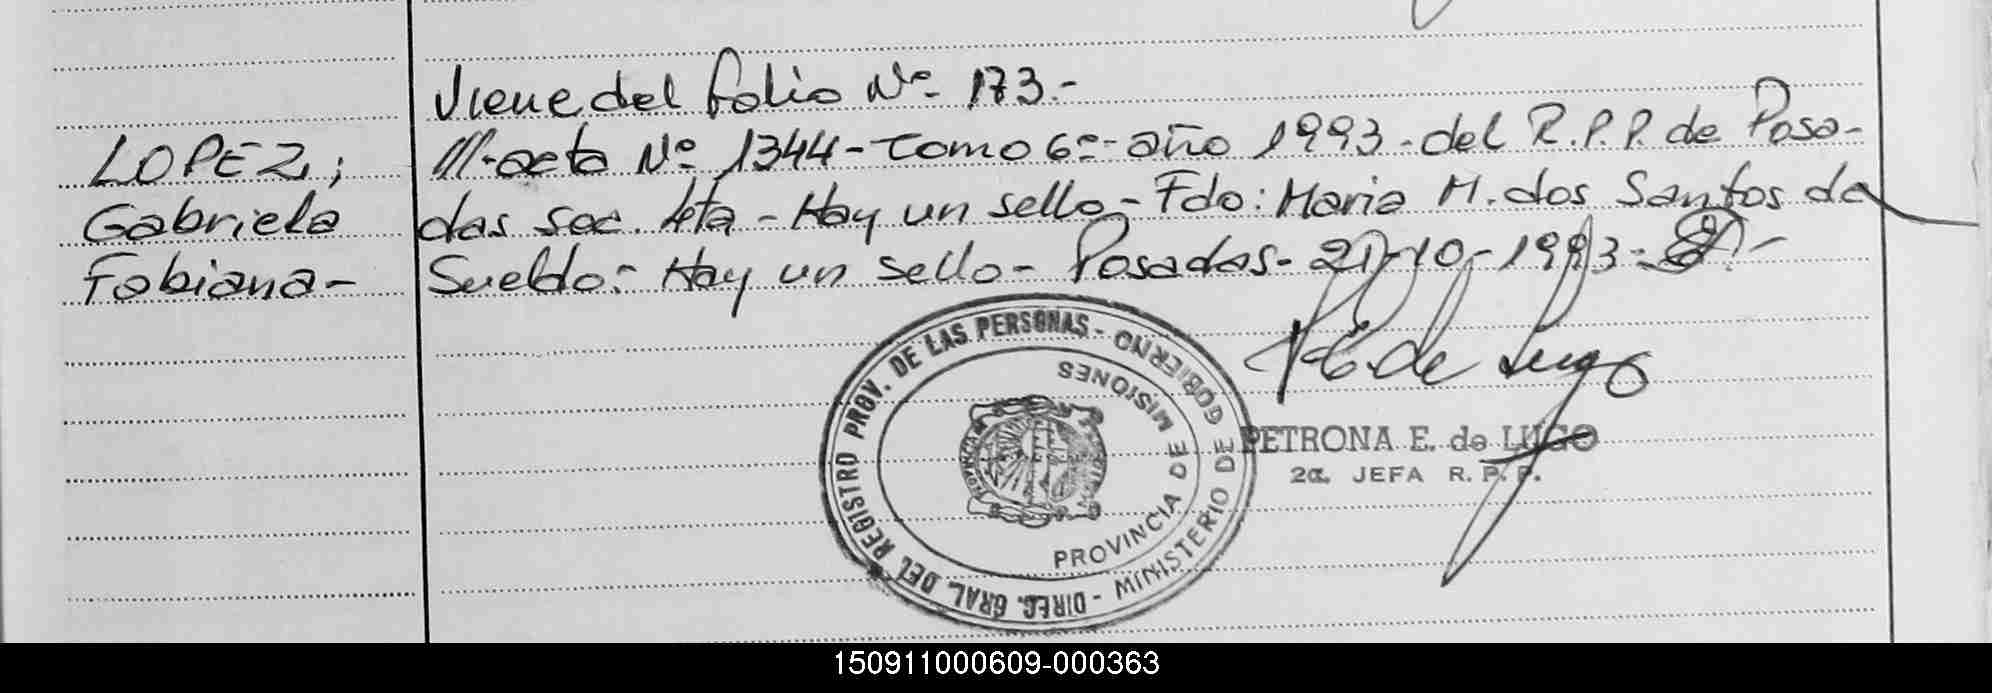 Viene del folio Nº 173.-
LOPEZ;
Gabriela
Fabiana-
///-acta Nº 1344-Tomo 6º-año 1993-del R.P.P. de Posa-
das sec. 4ta - Hay un sello - Fdo: Maria M. dos Santos de
Sueldo.- Hay un sello - Posadas - 21-10-1993.-
DIREC. GRAL. DEL REGISTRO PROV. DE LAS PERSONAS -
MINISTERIO DE GOBIERNO
PROVINCIA DE MISIONES
P E de Lugo
PETRONA E. de LUGO
2a. JEFA R. P. P.
150911000609-000363